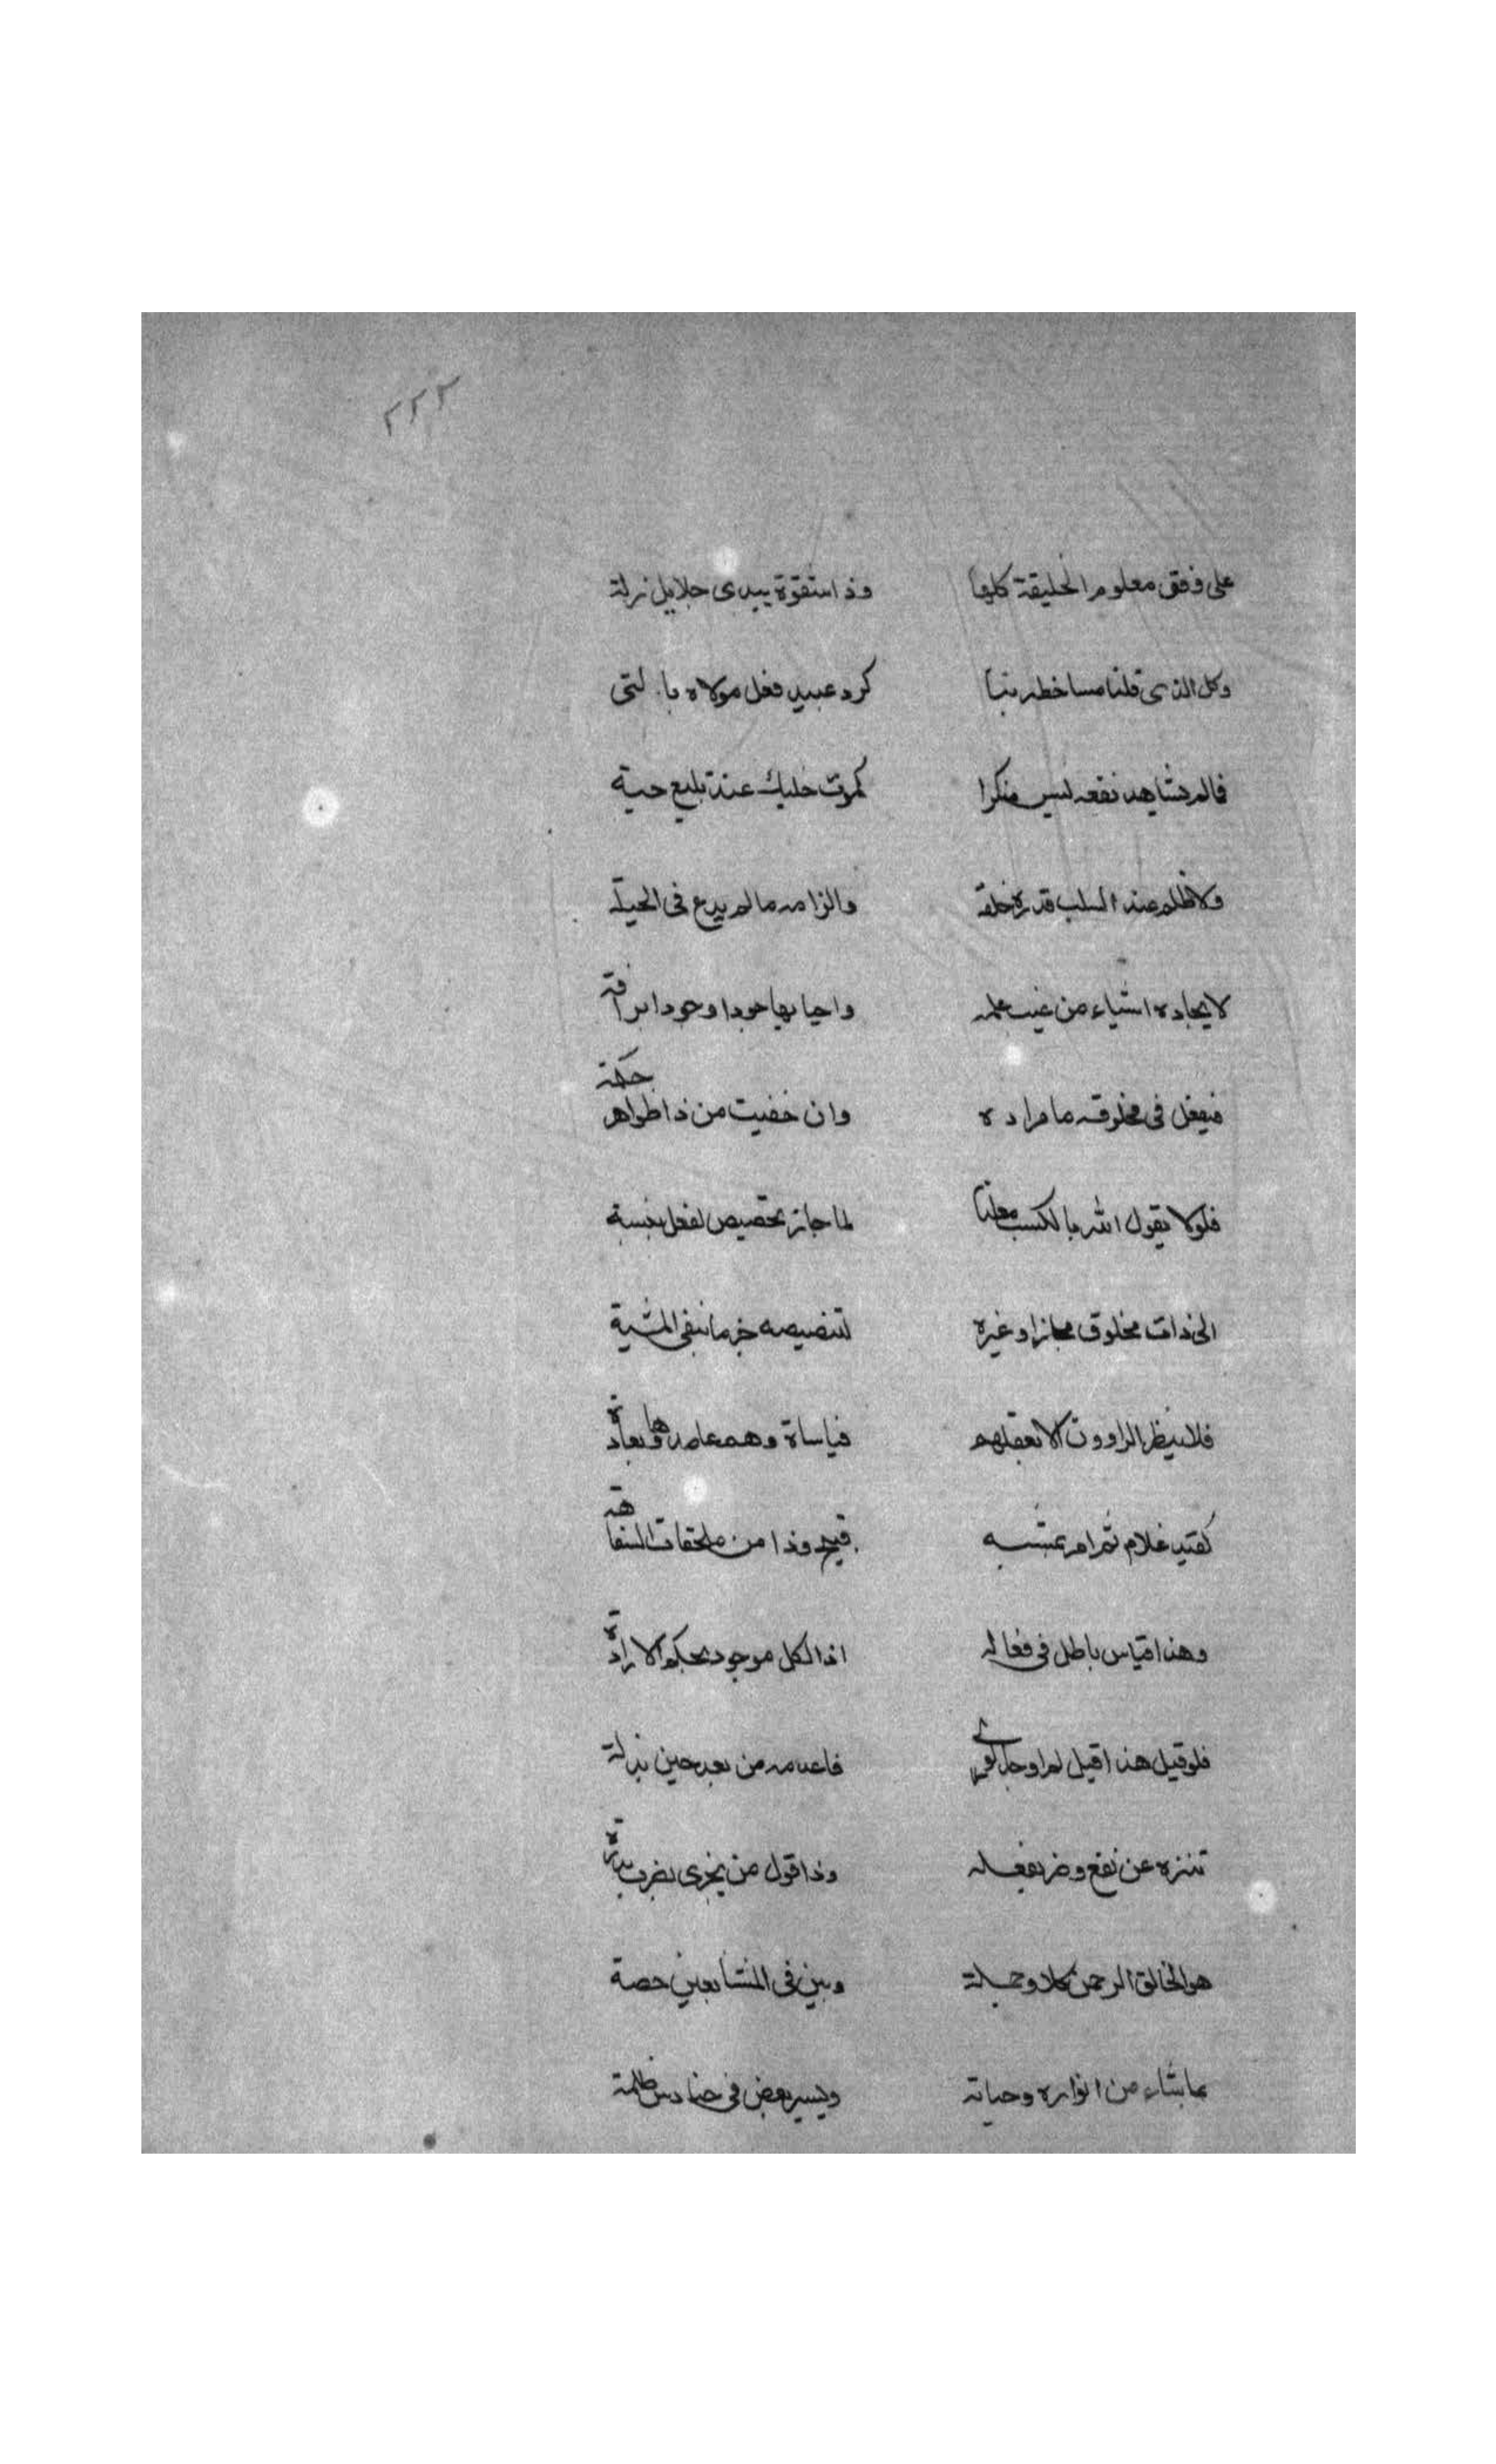 ٢٢٢
على وفق معلوم الخليقة كلها وذا شقوة يبدى جلايل زلة
وكل الذى قلنا مساخطر بنا كرد عبيد فعل مولاه با لتى
فالم نشاهد نفعه ليس منكرا كموت عند بليع حية
ولا ظلم عند السلب قدرة خلقه والزامه مالم يدع فى الحيلة
لايجاده اشياء من غيب علمه واحيا بها جودا وجودا برافة
فيفعل فى مخلوقه ما مراده وان خفيت من ذا ظواهر حكمة
فلولا يقول الله بالكسب معلنا لما جاز تخصيص لفعل بنسبة
الى ذات مخلوق مجازا وغيره لتنصيصه جزما بنفى المشية
فلا ينظر الراوون الا بعقلهم قياساة وهم عامدوها بعادة
كقيد غلام ثم امر بمشيه قبيح وذا من ملحقات السفاهة
وهذا قياس باطل فى فعاله اذا الكل موجود بحكم الارادة
فلو قيل هذا قيل لم اوجد فاعدمه من بعد حين بزلة
تنزه عن نفع وضر بفعله وذا قول من يجزى بضرب بدرة
هو الخالق الرحمن كلا وجملة وبين فى المنشا بعين حصة
بما شاء من انواره وحياته ويسير بعض فى حنادس ظلمة